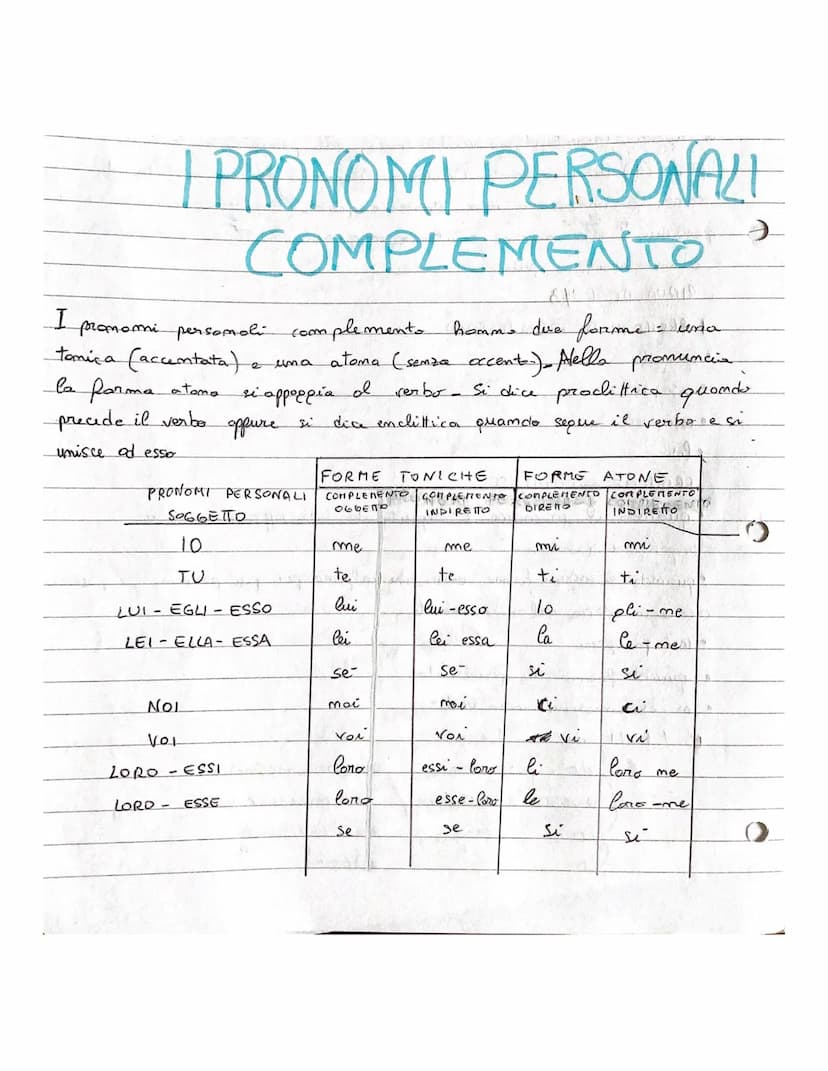 I PRONOMI PERSONALI
COMPLEMENTO
I pronomi personali complemento hanno due forme: una
tonica (accentata) e una atona (senza accento). Nella pronuncia
la forma atona si appoggia al verbo - Si dice proclittica quando
precede il verbo oppure si dice enclittica quando segue il verbo e si
unisce ad esso
FORME TONICHE FORME ATONE
PRONOMI PERSONALI SOGGETTO COMPLEMENTO OGGETTO COMPLEMENTO INDIRETTO COMPLEMENTO DIRETTO COMPLEMENTO INDIRETTO
IO me me mi mi
TU te te ti ti
LUI - EGLI - ESSO lui lui - esso lo gli - ne
LEI - ELLA - ESSA lei lei essa la le - ne
se se si si
NOI noi noi ci ci
VOI voi voi vi vi
LORO - ESSI loro essi - loro li loro ne
LORO - ESSE loro esse - loro le loro - ne
se se si si